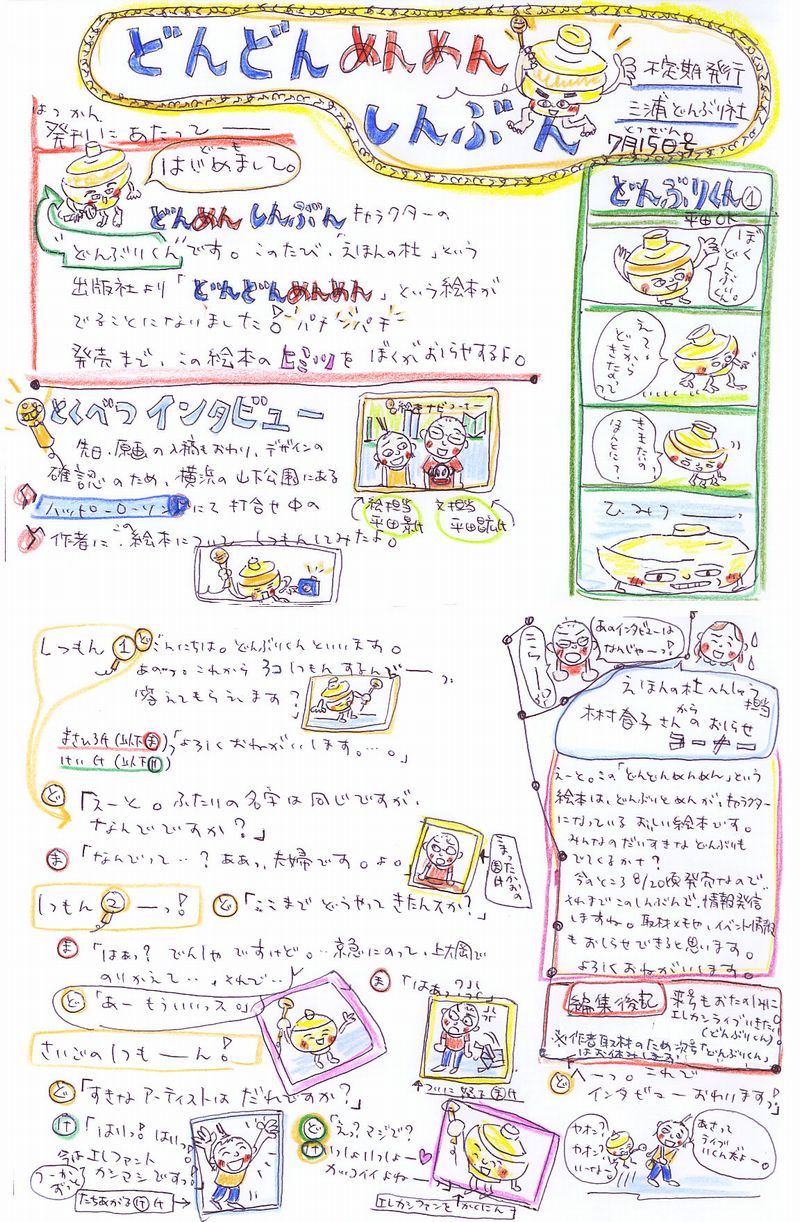 どんどんめんめん
しんぶん
不定期発行
三浦どんぶり社
とつぜん
7月15日号
はっかん
発刊にあたって――
どーも
はじめまして。
どんめんしんぶんキャラクターの
"どんぶりくん"です。このたび、「えほんの杜」という
出版社より「どんどんめんめん」という絵本が
でることになりました! パチパチ
発売まで、この絵本のヒミツをぼくがおしらせするよ。
どんぶりくん①
平田OK
ぼくどんぶりくん。
えて。
どこから
きたので
きまたの
ほんとに?
ひみつ――っ
とくべつインタビュー
先日、原画の入稿もおわり、デザインの
確認のため、横浜の山下公園にある
ハットローローソンにて打合せ中の
作者にこの絵本についてしつもんしてみたよ。
絵担当
平田景
文担当
平田昌広
しつもん① ど こんにちは。どんぶりくんといいます。
あのっ。これから3コしつもんするんで――っ。
答えてもらえます?
まさひろ(以下ま)
けい(以下け)
「よろしくおねがいします。…。」
ど 「えーと。ふたりの名字は同じですが、
なんでですか?」
ま 「なんでって‥?ああっ、夫婦です。よ。
こまったかおの
しつもん②ーっ! ど 「ここまでどうやってきたんスか?」
ま 「はぁっ?でんしゃですけど。‥京急にのって、上大岡で
のりかえて‥、それで‥」
ど 「あー もういいっス。」
ま 「はあっ?」
さいごのしつもーん!
ど 「すきなアーティストはだれですか?」
け 「はいっ!はいっ!
今はエレファント
カシマシですっ!」
たちあがるけ
ど 「えっ?マジで?
いっしょいっしょー
カッコイイよねー
エレカシファンとかくにん
ど へーっ。これで
インタビューおわります!」
ヤオン?
ヤオン?
いーな。
あさって
ライブ
いくんだよー。
あのインタビューは
なんじゃーっ!?
えほんの杜へんしゅう担当
木村春子さんからのおしらせ
コーナー
えーと。この「どんどんめんめん」という
絵本は、どんぶりとめんが、キャラクター
になっているおいしい絵本です。
みんなのだいすきなどんぶりも
でてくるかナ?
今のところ8/20頃発売なので
それまでこのしんぶんで、情報発信
しますね。取材メモや、イベント情報
もおしらせできると思います。
よろしくおねがいします。
編集後記
来号もおたのしみに
エレカシライブいきたい。
(どんぶりくん)
※作者取材のため次号「どんぶりくん」
はお休みします